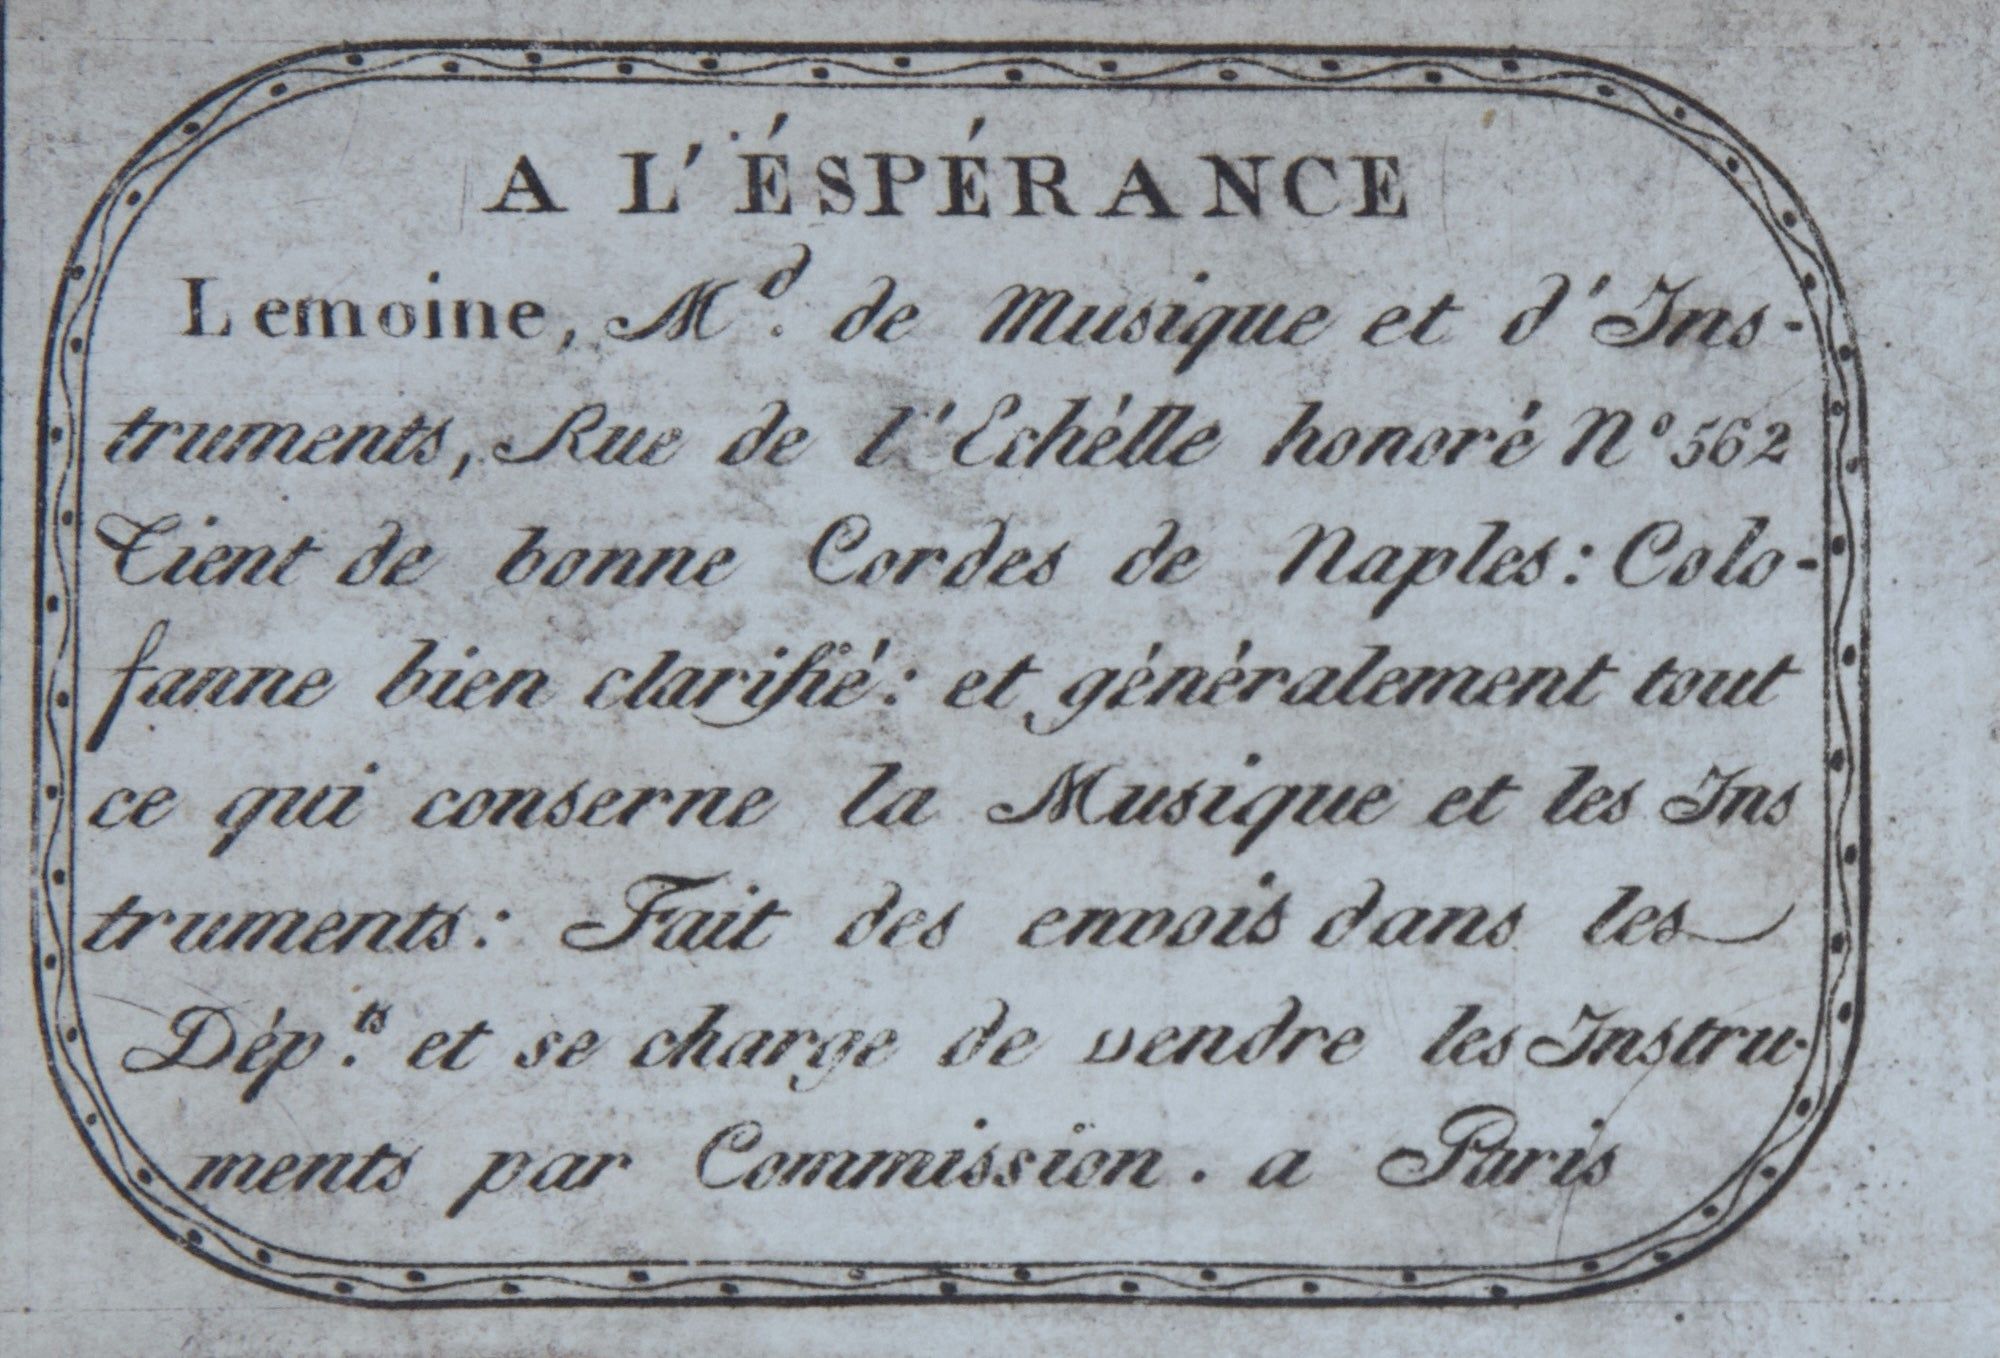 A L'ÉSPÉRANCE
Lemoine, Md. de Musique et d'Ins-
truments, Rue de l'Echélle honoré No 562
Tient de bonne Cordes de Naples: Colo-
fanne bien clarifié: et généralement tout
ce qui conserne la Musique et les Ins
truments: Fait des envois dans les
Dép.ts et se charge de vendre les Instru-
ments par Commission. a Paris